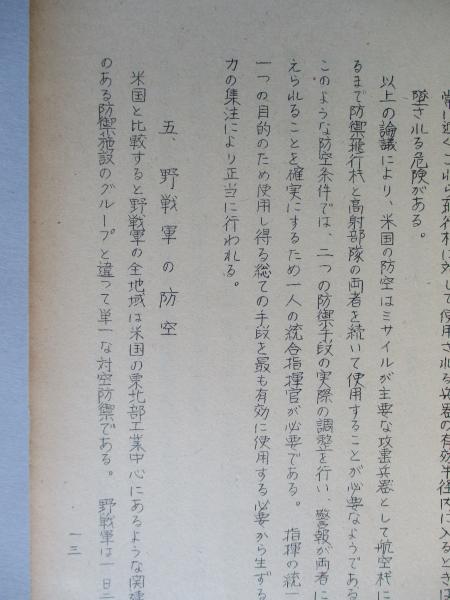 常に近くこれら飛行村に対して使用される兵器の有効半径内に入るときは
墜される危険がある。
以上の論議により、米国の防空はミサイルが主要な攻撃兵器として航空機に
るまで防禦飛行村と高射部隊の両者を続いて使用することが必要なようである
このような防空条件では、二つの防禦手段の実際の調整を行い、警報が両者に
えられることを確実にするため一人の統合指揮官が必要である。 指揮の統一
一つの目的のため使用し得る総ての手段を最も有効に使用する必要から生ずる
力の集注により正当に行われる。
五、野戦軍の防空
米国と比較すると野戦軍の全地域は米国の東北部工業中心にあるような関連
のある防禦施設のグループと違って単一な対空防禦である。 野戦軍は一日二
一三